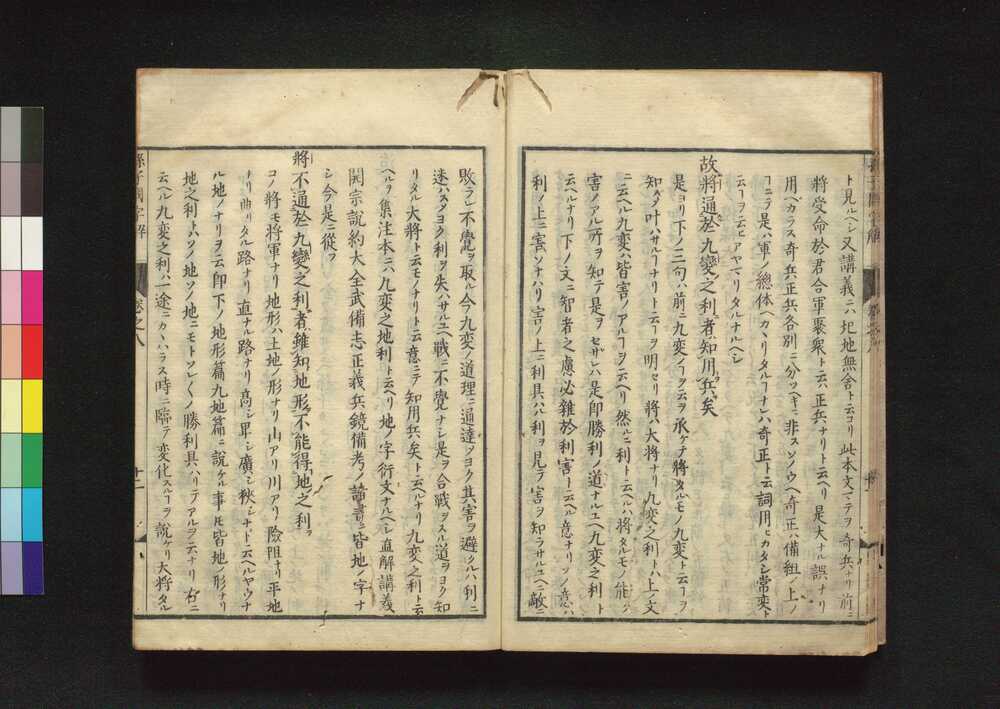 ト見ルヘシ又講義ニハ圮地無舎ト云コリ此本文マテヲ奇兵ナリ前ニ
將受命於君合軍聚衆ト云ハ正兵ナリト云ヘリ是大ナル誤ナリ
用ヘカラス奇兵正兵各別ニ分ツヘキニ非スソノウヘ奇正ハ備組ノ上ノ
ヿニテ是ハ軍ノ總体ヘカヽリタルヿナレハ奇正ト云詞用ヒカタシ常変ト
云ヿヲ云ヒアヤマリタルナルヘシ
故將通於九變之利者知用兵矣
是ヨリ下ノ二句ハ前ニ九変ノヿヲ云ヲ承ケテ將タルモノ九変ト云ヿヲ
知ネハ叶ハサルヿナリト云ヿヲ明セリ將ハ大將ナリ九変之利トハ上ノ文
ニ云ヘル九変ハ皆害ノアルヿヲ云ヘリ然ルニ利ト云ヘルハ將タルモノ能ク
害ノアル所ヲ知テ是ヲセザレハ是即勝利ノ道ナルユヘ九変之利ト
云ヘルナリ下ノ文ニ智者之慮必雜於利害ト云ヘル意ナリソノ意ハ
利ノ上ニ害ソナハリ害ノ上ニ利具ハル利ヲ見テ害ヲ知ラサルユヘニ敵ニ
敗ラレ不覺ヲ取ル今九変ノ道理ニ通達シヨク其害ヲ避クルハ利ニ
迷ハスヨク利ヲ失ハサルユヘ戰ニ不覺ナシ是ヲ合戰ヲスル道ヲヨク知
リタル大將ト云モノナリト云意ニテ知用兵矣ト云ヘルナリ九変之利ト云
ヘルヲ集注本ニハ九変之地利ト云ヘリ地ノ字衍文ナルヘシ直解講義
開宗説約大全武備志正義兵鏡備考ノ諸書ニ皆地ノ字ナ
シ今是ニ從フ
將不通於九變之利者雖知地形不能得地之利
コノ將モ將軍ナリ地形ハ土地ノ形ナリ山アリ川アリ險阻ナリ平地
ナリ曲リタル路ナリ直ナル路ナリ高シ卑シ廣シ狹シナト云ヘルヤウナ
ル地ノナリヲ云即下ノ地形篇九地篇ニ説ケル事𪜈皆地ノ形ナリ
地之利トハソノ地ソノ地ニモトソレ〱ノ勝利具ハリテアルヲ云ナリ右ニ
云ヘル九変之利ハ一途ニカヽハラス時ニ臨テ変化スルヿヲ説ケリ大將タル
孫子國字解
卷之八
十二